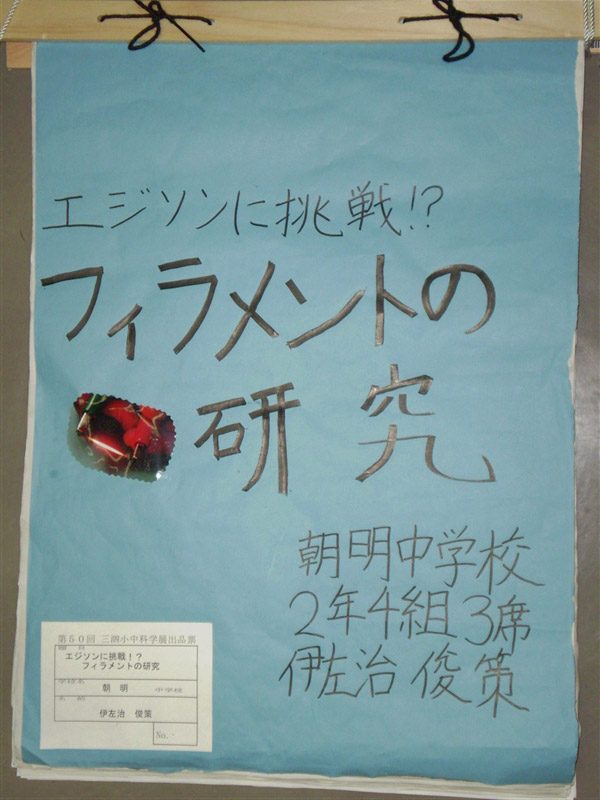 エジソンに挑戦!?
フィラメントの
研究
朝明中学校
2年4組3席
伊左治俊策
第50回 三泗小中科学展出品票
題 目
エジソンに挑戦!?
フィラメントの研究
学校名
朝 明 中学校
名 前
伊左治 俊策
No.